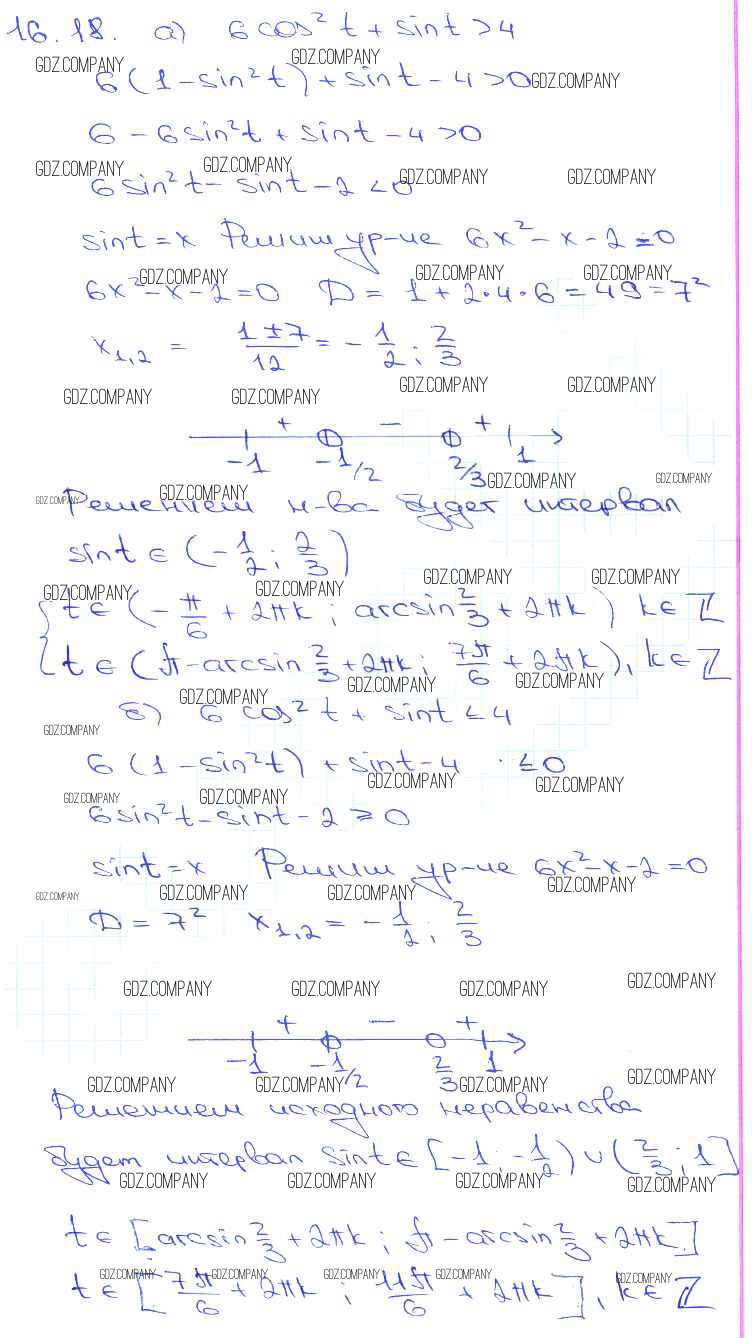 16.18. а) 6cos²t + sint > 4
GDZ.COMPANY GDZ.COMPANY
6(1 - sin²t) + sint - 4 > 0 GDZ.COMPANY
6 - 6sin²t + sint - 4 > 0
GDZ.COMPANY GDZ.COMPANY GDZ.COMPANY GDZ.COMPANY
6sin²t - sint - 2 < 0
sint = x Решим ур-ие 6x² - x - 2 = 0
GDZ.COMPANY GDZ.COMPANY GDZ.COMPANY
6x² - x - 2 = 0 D = 1 + 2·4·6 = 49 = 7²
x₁,₂ = (1 ± 7)/12 = -1/2 ; 2/3
GDZ.COMPANY GDZ.COMPANY GDZ.COMPANY GDZ.COMPANY
+ - +
-1 -1/2 2/3 1
GDZ.COMPANY GDZ.COMPANY
GDZ.COMPANY GDZ.COMPANY
Решением н-ва будет интервал
sint ∈ (-1/2 ; 2/3)
GDZ.COMPANY GDZ.COMPANY GDZ.COMPANY GDZ.COMPANY
{ t ∈ (-π/6 + 2πk ; arcsin 2/3 + 2πk) k ∈ Z
t ∈ (π - arcsin 2/3 + 2πk ; 7π/6 + 2πk), k ∈ Z
GDZ.COMPANY GDZ.COMPANY GDZ.COMPANY
б) 6cos²t + sint < 4
GDZ.COMPANY
6(1 - sin²t) + sint - 4 ≤ 0
GDZ.COMPANY GDZ.COMPANY
GDZ.COMPANY GDZ.COMPANY
6sin²t - sint - 2 ≥ 0
sint = x Решим ур-ие 6x² - x - 2 = 0
GDZ.COMPANY GDZ.COMPANY GDZ.COMPANY GDZ.COMPANY
D = 7² x₁,₂ = -1/2 ; 2/3
GDZ.COMPANY GDZ.COMPANY GDZ.COMPANY GDZ.COMPANY
+ - +
-1 -1/2 2/3 1
GDZ.COMPANY GDZ.COMPANY GDZ.COMPANY GDZ.COMPANY
Решением исходного неравенства
будет интервал sint ∈ [-1 ; -1/2) ∪ (2/3 ; 1]
GDZ.COMPANY GDZ.COMPANY GDZ.COMPANY GDZ.COMPANY
t ∈ [arcsin 2/3 + 2πk ; π - arcsin 2/3 + 2πk]
GDZ.COMPANY GDZ.COMPANY GDZ.COMPANY GDZ.COMPANY GDZ.COMPANY
t ∈ [7π/6 + 2πk ; 11π/6 + 2πk], k ∈ Z